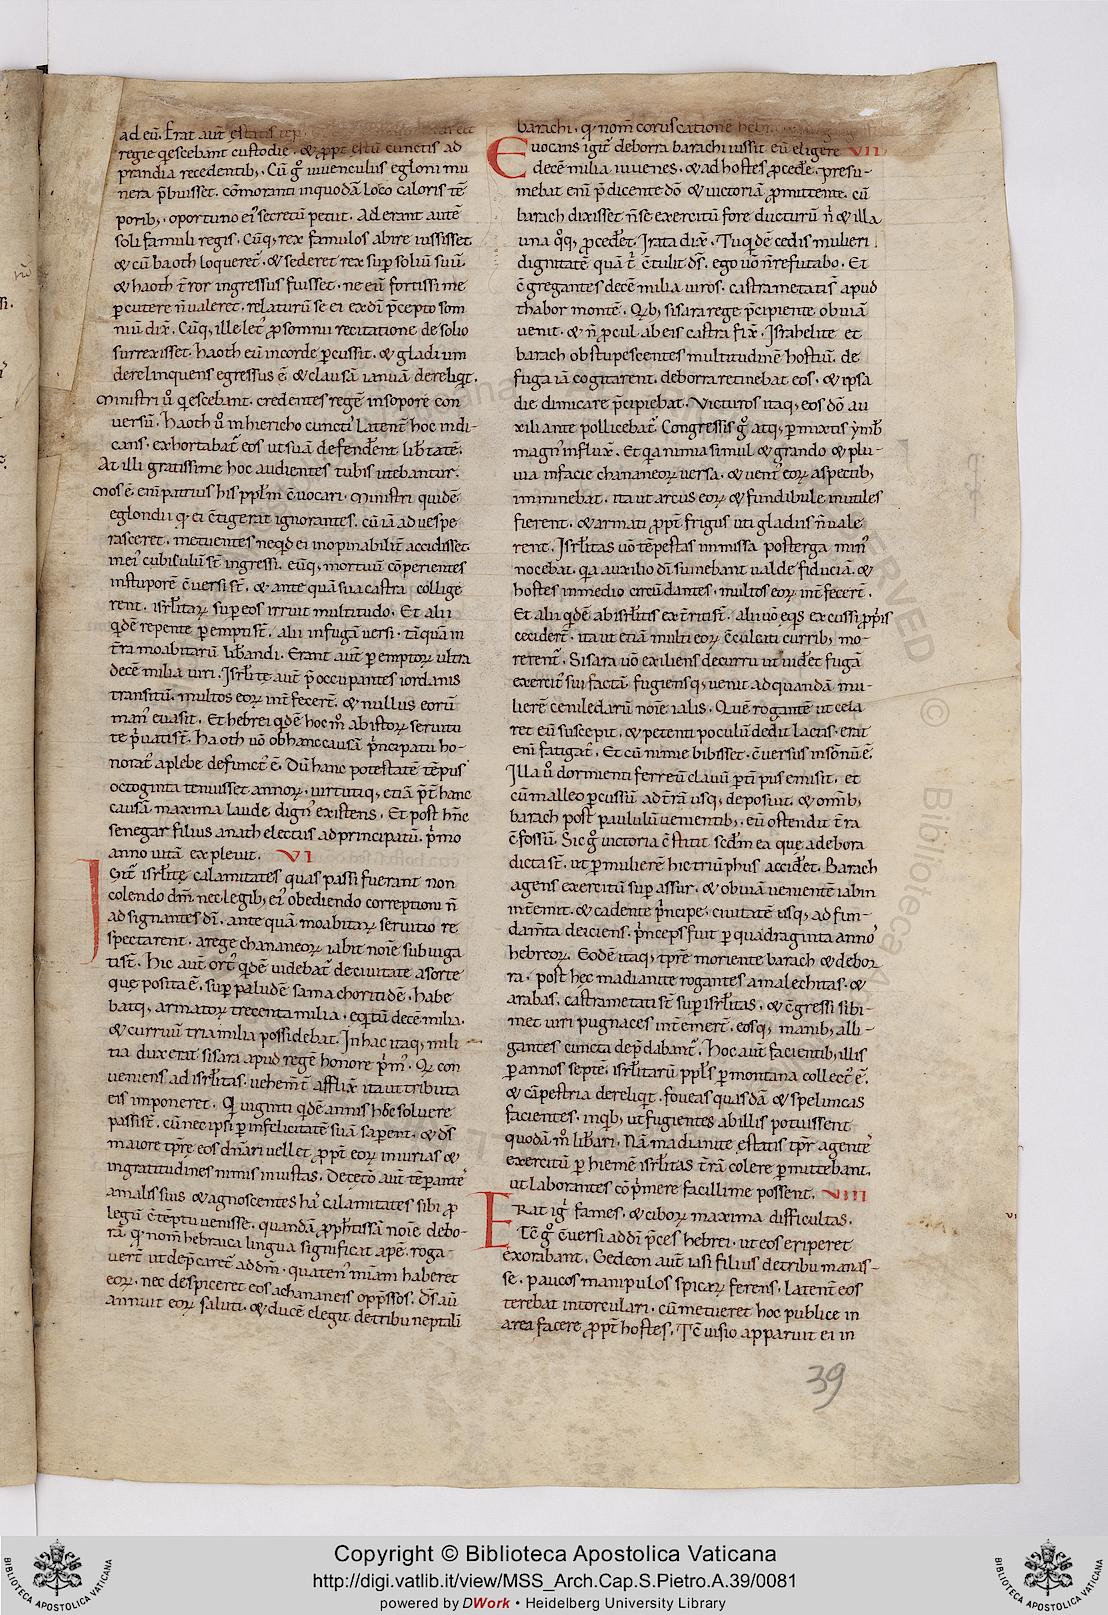 ad eū. Erat aut̄ estatis
regie qescebant custodie. & ꝓpt estū cunctis ad
prandia recedentib;. Cū gͦ iuuenculus egloni mu
nera p̄buisset. cōmoranti inquodā loco caloris tē
porib;. oportuno ei' secretū petiit. Ad erant autē
soli famuli regis. Cūq; rex famulos abire iussisset.
& cū haoth loqueret̄. & sederet rex suꝑ soliū suū.
& haoth t̄ror ingressus fuisset. ne eū fortissime
ꝑcutere n̄ ualeret. relaturū se ei ex dī p̄cepto som
niū dix̄. Cūq; ille let' ꝓ somnii recitatione de solio
surrexisset. haoth eū incorde ꝑcussit. & gladium
derelinquens egressus ē. & clausā ianuā dereliqt.
Ministri ū̊ qescebant. credentes regē insopore con
uersū. Haoth ū̊ inhiericho cuncti' latent̄ hoc indi-
cans. exhortabat̄ eos ut suā defendēent lib̄tatē.
At illi gratissime hoc audientes tubis utebantur.
Mos ē enī patrius his ppl̄m c̄uocari. Ministri quidē
eglondii qͥ ei c̄tigerat ignorantes. cū iā ad uespe
rasceret. metuentes neqd ei inopinabilit̄ accidisset.
mei' cubiculū st̄ ingressi. eūq; mortuū cōperientes
instuporē c̄uersi st̄. & ante quā sua castra collige
rent. isrl̄itaꝝ suꝑ eos irruit multitudo. Et alii
qdē repente ꝑempti st̄. alii infugā uersi. tāquā in
t̄ra moabitarū lib̄andi. Erant aut̄ ꝑemptoꝝ ultra
decē milia uiri. Isrl̄ite aut̄ p̄occupantes iordanis
transitū. multos eoꝝ int̄fecert̄. & nullus eorū
man' euasit. Et hebrei qdē hoc mͦ abistoꝝ seruitu
te p̄uati st̄. Haoth uō ob hanc causā p̄ncipatu ho-
norat' aplebe defunct' ē. Dū hanc potestatē tēpus
octoginta tenuisset annoꝝ. uirtutiq; etiā p̄t̄ hanc
causā maxima laude dign' existens. Et post hn̄c
senegar filius anath electus ad principatū. p̄mo
anno uitā expleuit. VI
Igit' isrl̄itę calamitates quas passi fuerant non
colendo dm̄. nec legib; ei' obediendo correptioni n̄
ad signantes dī. ante quā moabitaꝝ seruitio re
spectarent. arege chananeoꝝ iabit noīe subiuga
ti st̄. Hic aut̄ ort' qdē uidebat' deciuitate asorte
que posita ē. suꝑ paludē samachoritidē. habe
batq; armatoꝝ trecenta milia. eqitū decē milia.
& curruū tria milia possidebat. In hac itaq; mili
tia dux erat sisara apud regē honore p̄m'. Qͥ con
ueniens ad isrl̄itas. uehem̄t̄ afflix̄ ita ut tributa
eis imponeret. Qͥ uiginti qdē annis hͦ desoluere
passi st̄. cū nec ipsi ꝑ infelicitatē suā saꝑent. & ds̄
maiore tpr̄e eos dn̄ari uellet ꝓpt̄ eoꝝ iniurias &
ingratitudines nimis iniustas. Detecto aut̄ tēꝑante'
amalis suis & agnoscentes ha' calamitates sibi ꝓ
legū c̄tēptu uenisse. quandā ꝓph̄tissā noīe debo-
rā. qͥ nom̄ hebraica lingua significat apē. roga
uert̄ ut dep̄caret̄ ad dm̄. quaten' mīam haberet
eoꝝ. nec despiceret eos achananeis opp̄ssos. Ds̄ aū
annuit eoꝝ saluti. & ducē elegit detribu neptali
barachi. qͥ nom̄ coruscatione
Euocans igit̄ deborra barachi iussit eū eligere VII
decē milia iuuenes. & ad hostes ꝓcedēe. presu-
mebat enī p̄dicente dō & uictoriā ꝓmittente. cū
barach dixisset n̄ se exercitū fore ducturū n̄ & illa
una q̊q; ꝓcedēt. Irata dix̄. Tu qdē cedis mulieri
dignitatē quā t̄ c̄tulit ds̄. ego uō n̄ refutabo. Et
c̄gregantes decē milia uiros. castrametatis apud
thabor montē. Qͥb; sisara rege p̄cipiente obuiā
uenit. & n̄ ꝓcul ab eis castra fix̄. Israhelite et
barach obstupescentes multitudinē hostiū. de
fuga iā cogitarent. deborra retinebat eos. & ipsa
die dimicare p̄cipiebat. Victuros itaq; eos dō au
xiliante pollicebat̄. Congressis gͦ atq; ꝑmixtis ymb'
magn' influx̄. Et qa nimia simul & grando & plu-
uia infacie chananeoꝝ uersa. & uent' eoꝝ aspectib;
imminebat. ita ut arcus eoꝝ & fundibule inutiles
fierent. & armati ꝓpt̄ frigus uti gladiis n̄ uale
rent. Isrl̄itas uō tēpestas inmissa posterga min'
nocebat. qa auxilio dī sumebant ualde fiduciā. &
hostes inmedio circūdantes. multos eoꝝ int̄fecert̄.
Et alii qdē ab isrl̄itis ext̄riti st̄. alii uō eqͥs excussi ꝓp̄is
ceciderт̄. ita ut etiā multi eoꝝ c̄culcati currib; mo-
rerent̄. Sisara uō exiliens decurru ut uidēt fugā
exercit' sui factā. fugiensq; uenit ad quandā mu-
lierē ceniledarū noīe ialis. Quē rogantē ut cela
ret eū suscepit. & petenti poculū dedit lactis. erat
enī fatigat'. Et cū nimie bibisset. c̄uersus insōnū ē.
Illa ū̊ dormienti ferreū clauū ꝑ tīpus emisit. et
cū malleo ꝑcussū ad t̄rā usq; deposuit. & omīb;
barach post paululū uenientib;. eū ostendit t̄ra
c̄fossū. Sic gͦ uictoria c̄stitit sedm̄ ea que adebora
dicta st̄. ut ꝑ mulierē hic triūphus accidēt. Barach
agens exercitū suꝑ assur. & obuiā uenientē iabin
int̄emit. & cadente p̄ncipe; ciuitatē usq; ad fun-
dam̄ta deiciens. p̄nceps fuit ꝑ quadraginta anno'
hebreoꝝ. Eodē itaq; tpr̄e moriente barach & deboꝝ
ra. post hec madianite rogantes amalechitas. &
arabas. castrametati st̄ suꝑ isrl̄itas. & c̄gressi sibi-
met uiri pugnaces int̄emert̄. eosq; manib; alli-
gantes cuncta dep̄dabant̄. Hoc aut̄ facientib; illis
ꝑ annos septē. isrl̄itarū ppl̄s ꝑ montana collect' ē.
& cāpestria dereliqt. foueas quasdā & speluncas
facientes. inqͥb; ut fugientes ab illis potuissent
quodā mͦ lib̄ari. Nā madianite estatis tpr̄ agente'
exercitū ꝑ hiemē isrl̄itas t̄rā colere ꝑmittebant.
ut laborantes cōp̄mere facillime possent. VIII
Erat igͥ fames. & ciboꝝ maxima difficultas.
Tc̄ gͦ c̄uersi ad dī p̄ces hebrei. ut eos eriperet
exorabant. Gedeon aut̄ iasi filius detribu manas-
se. paucos manipulos spicaꝝ ferens. latent̄ eos
terebat intorculari. cū metueret hoc publice in
area facere ꝓpt̄ hostes. Tc̄ uisio apparuit ei in
VI
39
Copyright © Biblioteca Apostolica Vaticana
http://digi.vatlib.it/view/MSS_Arch.Cap.S.Pietro.A.39/0081
powered by DWork • Heidelberg University Library